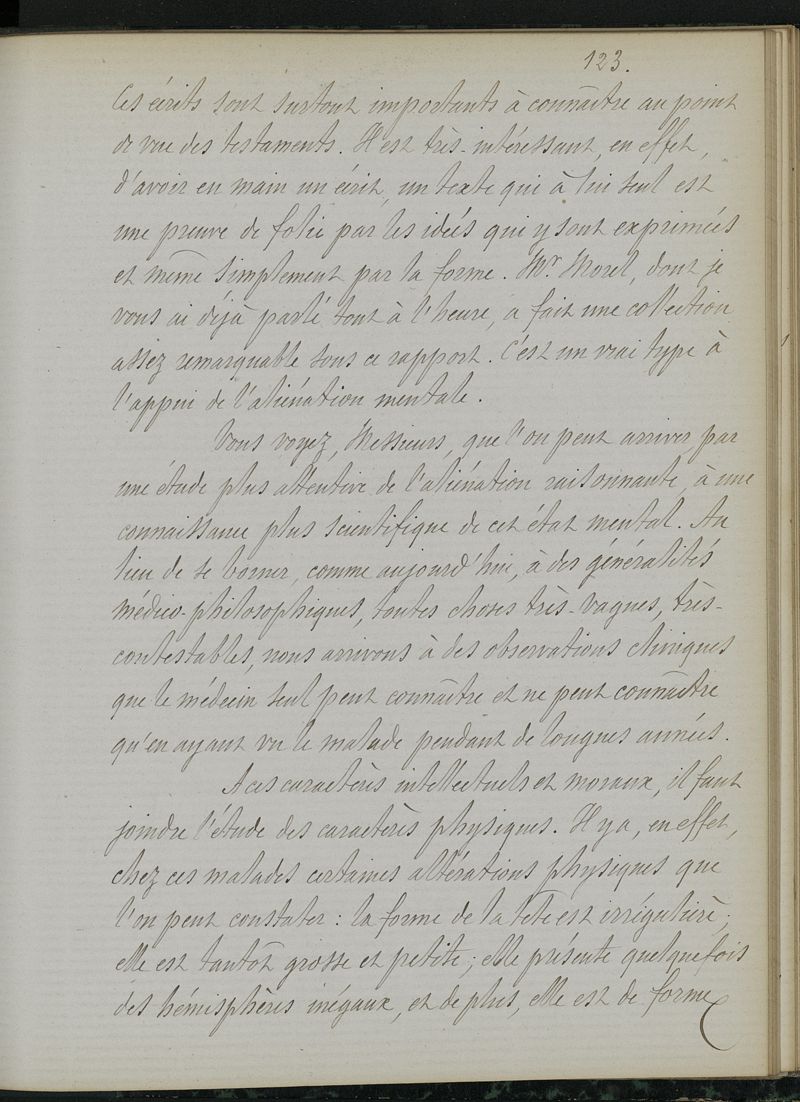 123.
Ces écrits sont surtout importants à connaître au point
de vue des testaments. Il est très-intéressant, en effet,
d'avoir en main un écrit, un texte qui à lui seul est
une preuve de folie par les idées qui y sont exprimées
et même simplement par la forme. Mr. Morel, dont je
vous ai déjà parlé tout à l'heure, a fait une collection
assez remarquable sous ce rapport. C'est un vrai type à
l'appui de l'aliénation mentale.
Vous voyez, Messieurs, que l'on peut arriver par
une étude plus attentive de l'aliénation raisonnante, à une
connaissance plus scientifique de cet état mental. Au
lieu de se borner, comme aujourd'hui, à des généralités
médico-philosophiques, toutes choses très-vagues, très-
contestables, nous arrivons à des observations cliniques
que le médecin seul peut connaître et ne peut connaître
qu'en ayant vu le malade pendant de longues années.
A ces caractères intellectuels et moraux, il faut
joindre l'étude des caractères physiques. Il y a, en effet,
chez ces malades certaines altérations physiques que
l'on peut constater : la forme de la tête est irrégulière ;
elle est tantôt grosse et petite ; elle présente quelquefois
des hémisphères inégaux, et de plus, elle est de forme